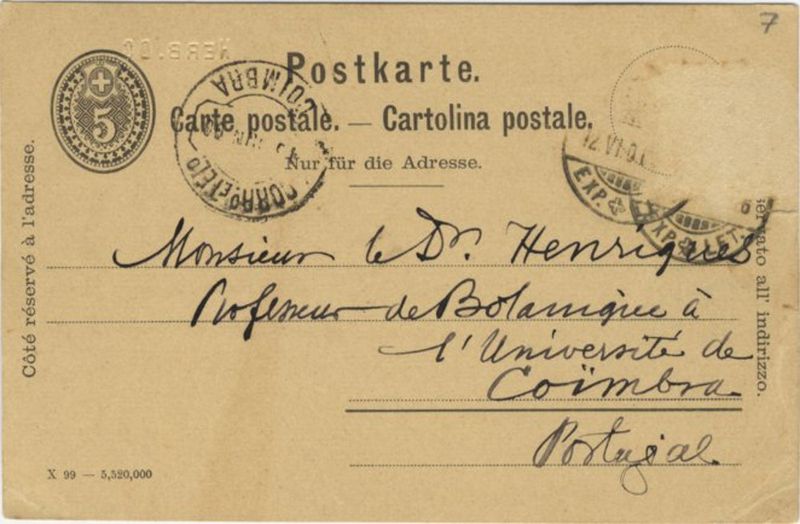 7
HERB.CO
Postkarte.
5
COIMBRA
Carte postale. — Cartolina postale.
Nur für die Adresse.
CORRO E TELO
EXP.
EXP. LET.
6
Côté réservé à l'adresse.
servato all' indirizzo.
Monsieur le Dr. Henriques
Professeur de Botanique à
l'Université de
Coïmbra
Portugal.
X 99 — 5,520,000